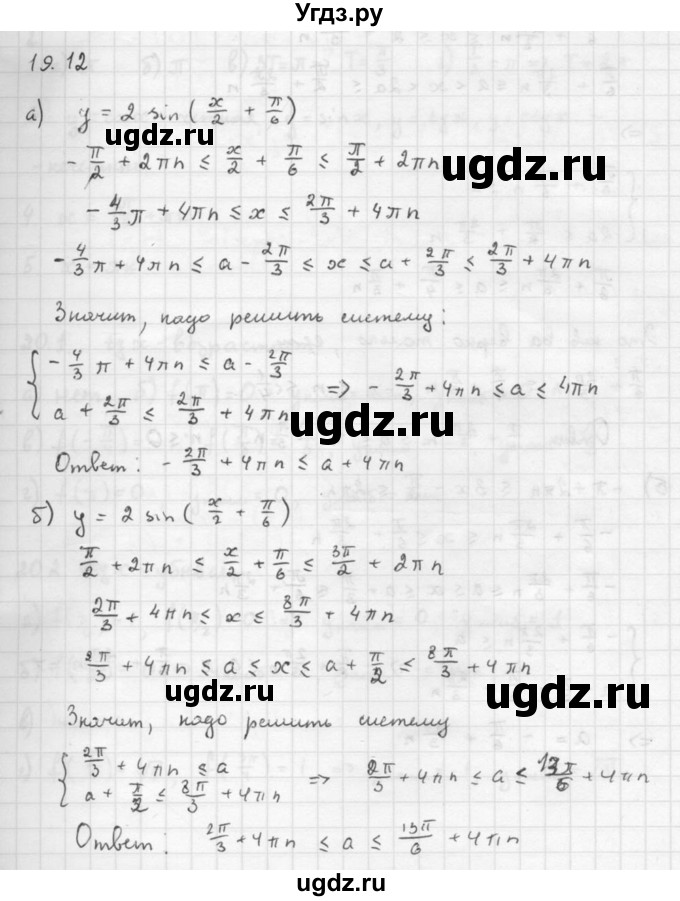 Угдз.ру
19.12
а) y = 2 sin(x/2 + π/6)
ugdz.ru
-π/2 + 2πn ≤ x/2 + π/6 ≤ π/2 + 2πn
ugdz.ru
-4/3 π + 4πn ≤ x ≤ 2π/3 + 4πn
-4/3 π + 4πn ≤ a - 2π/3 ≤ x ≤ a + 2π/3 ≤ 2π/3 + 4πn
Значит, надо решить систему:
{ -4/3 π + 4πn ≤ a - 2π/3
a + 2π/3 ≤ 2π/3 + 4πn ⇒ -2π/3 + 4πn ≤ a ≤ 4πn
ugdz.ru
Ответ: -2π/3 + 4πn ≤ a + 4πn
б) y = 2 sin(x/2 + π/6)
π/2 + 2πn ≤ x/2 + π/6 ≤ 3π/2 + 2πn
2π/3 + 4πn ≤ x ≤ 8π/3 + 4πn
2π/3 + 4πn ≤ a ≤ x ≤ a + π/2 ≤ 8π/3 + 4πn
ugdz.ru
ugdz.ru
Значит, надо решить систему
{ 2π/3 + 4πn ≤ a
a + π/2 ≤ 8π/3 + 4πn ⇒ 2π/3 + 4πn ≤ a ≤ 13π/6 + 4πn
Ответ: 2π/3 + 4πn ≤ a ≤ 13π/6 + 4πn
ugdz.ru
ugdz.ru